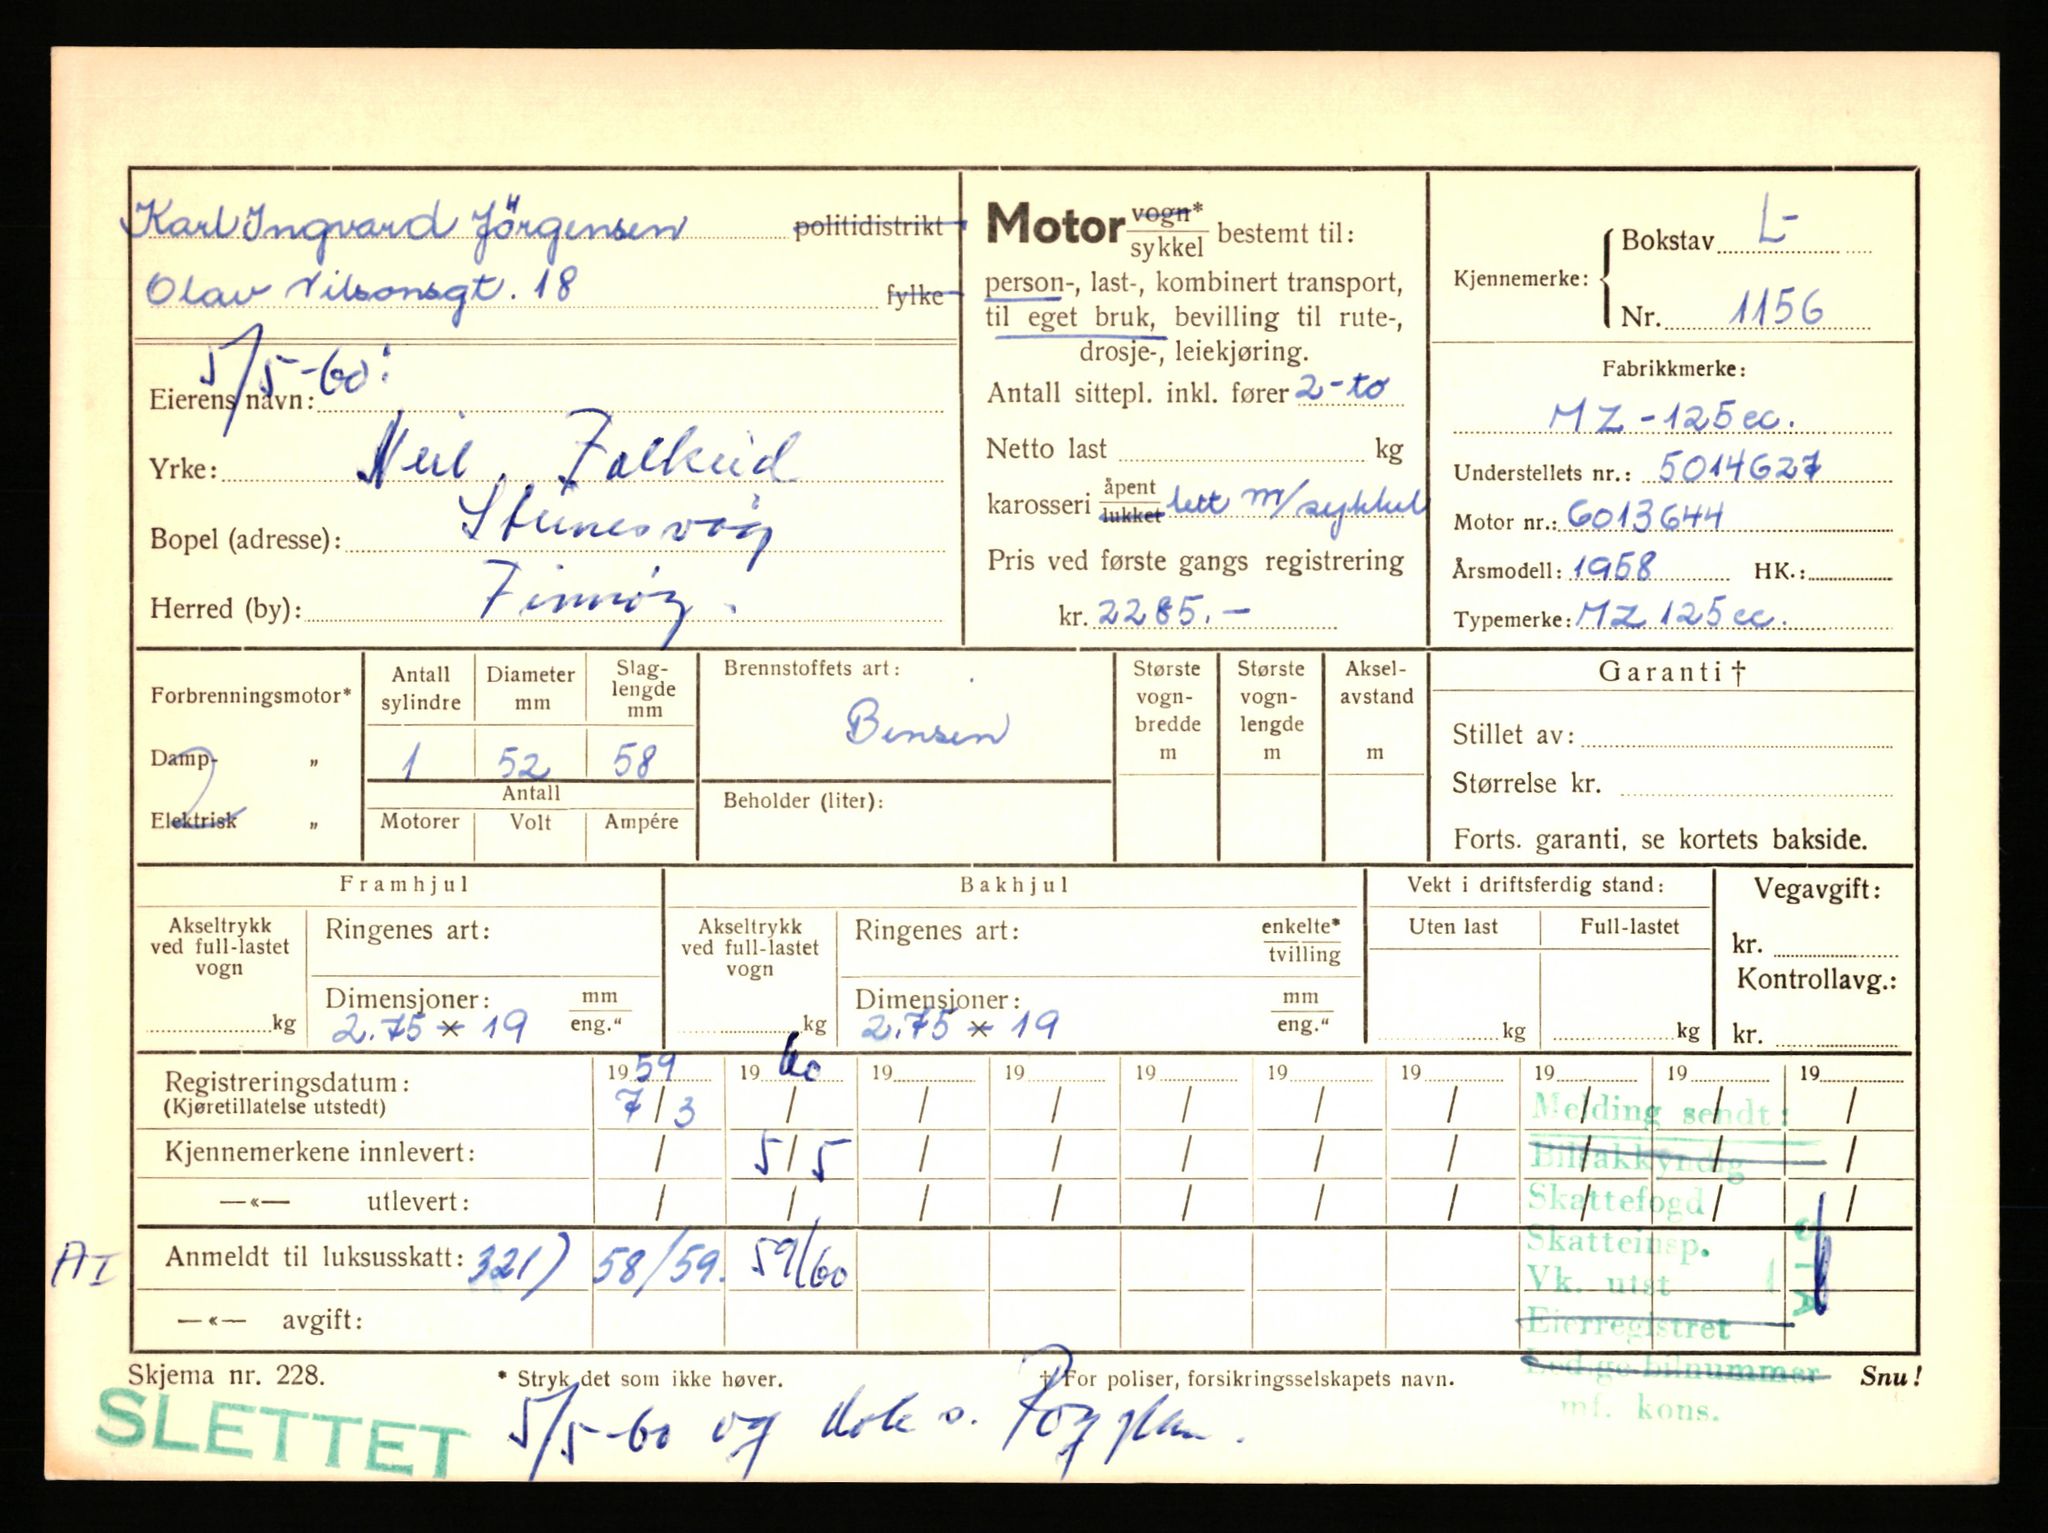 Karl Ingvard Jörgensen politidistrikt
Olav Nilsonsgt. 18 fylke
5/5-60:
Eierens navn:
Yrke: Neil Falkeid
Bopel (adresse):
Herred (by): Finnöy.
Motor vogn* / sykkel bestemt til:
person-, last-, kombinert transport,
til eget bruk, bevilling til rute-,
drosje-, leiekjøring.
Antall sittepl. inkl. fører 2-to
Netto last kg
karosseri åpent / lukket lett m/sykkel
Pris ved første gangs registrering
kr. 2285.-
Kjennemerke: Bokstav L-
Nr. 1156
Fabrikkmerke:
MZ-125cc.
Understellets nr.: 5014627
Motor nr.: 6013644
Årsmodell: 1958 HK.:
Typemerke: MZ 125cc.
Forbrenningsmotor*
Damp- „
Elektrisk „
2
Antall sylindre
Diameter mm
Slag-lengde mm
1 52 58
Antall
Motorer Volt Ampére
Brennstoffets art:
Bensin
Beholder (liter):
Største vogn-bredde m
Største vogn-lengde m
Aksel-avstand m
Garanti †
Stillet av:
Størrelse kr.
Forts. garanti, se kortets bakside.
Framhjul
Akseltrykk ved full-lastet vogn
kg
Ringenes art:
Dimensjoner: mm / eng."
2.75 x 19
Bakhjul
Akseltrykk ved full-lastet vogn
kg
Ringenes art: enkelte* / tvilling
Dimensjoner: mm / eng."
2.75 x 19
Vekt i driftsferdig stand:
Uten last Full-lastet
kg kg
Vegavgift:
kr.
Kontrollavg.:
kr.
19 59 19 60 19 19 19 19 19 19 19 19
Registreringsdatum: 7/3 / / / / / / / / /
(Kjøretillatelse utstedt)
Kjennemerkene innlevert: / 5/5 / / / / / / / /
—«— utlevert: / / / / / / / / / /
AI Anmeldt til luksusskatt: 321) 58/59. 59/60
—«— avgift:
Melding sendt:
Bilsakkyndig
Skattefogd
Skatteinsp.
Vk. utst
Eierregistret
Led.ge bilnummer
mf. kons.
Skjema nr. 228.
* Stryk det som ikke høver.
† For poliser, forsikringsselskapets navn.
Snu!
SLETTET 5/5-60 og